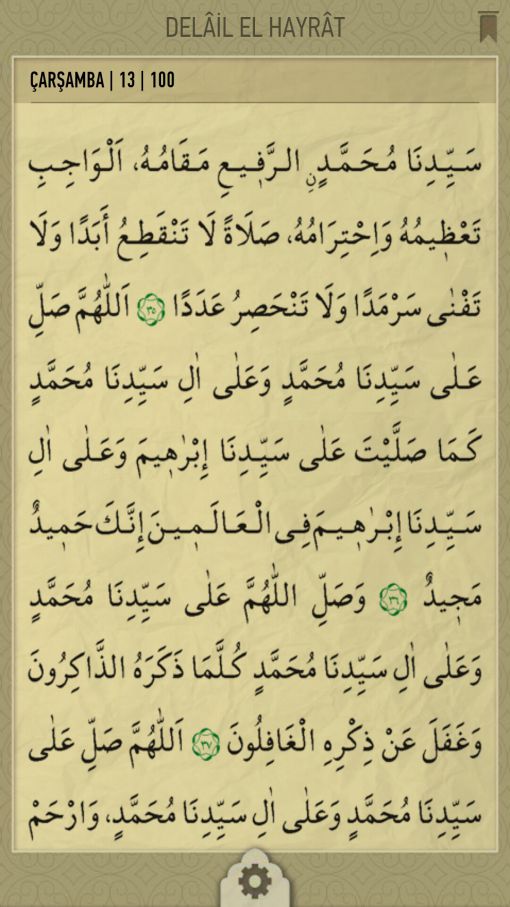 DELÂİL EL HAYRÂT
ÇARŞAMBA | 13 | 100
سَيِّدِنَا مُحَمَّدٍنِ الرَّفِيعِ مَقَامُهُ، اَلْوَاجِبِ
تَعْظِيمُهُ وَاِحْتِرَامُهُ، صَلَاةً لَا تَنْقَطِعُ أَبَدًا وَلَا
تَفْنٰى سَرْمَدًا وَلَا تَنْحَصِرُ عَدَدًا ٣٥ اَللّٰهُمَّ صَلِّ
عَلٰى سَيِّدِنَا مُحَمَّدٍ وَعَلٰى اٰلِ سَيِّدِنَا مُحَمَّدٍ
كَمَا صَلَّيْتَ عَلٰى سَيِّدِنَا إِبْرٰهِيمَ وَعَلٰى اٰلِ
سَيِّدِنَا إِبْرٰهِيمَ فِى الْعَالَمِينَ إِنَّكَ حَمِيدٌ
مَجِيدٌ ٣٦ وَصَلِّ اللّٰهُمَّ عَلٰى سَيِّدِنَا مُحَمَّدٍ
وَعَلٰى اٰلِ سَيِّدِنَا مُحَمَّدٍ كُلَّمَا ذَكَرَهُ الذَّاكِرُونَ
وَغَفَلَ عَنْ ذِكْرِهِ الْغَافِلُونَ ٣٧ اَللّٰهُمَّ صَلِّ عَلٰى
سَيِّدِنَا مُحَمَّدٍ وَعَلٰى اٰلِ سَيِّدِنَا مُحَمَّدٍ، وَارْحَمْ